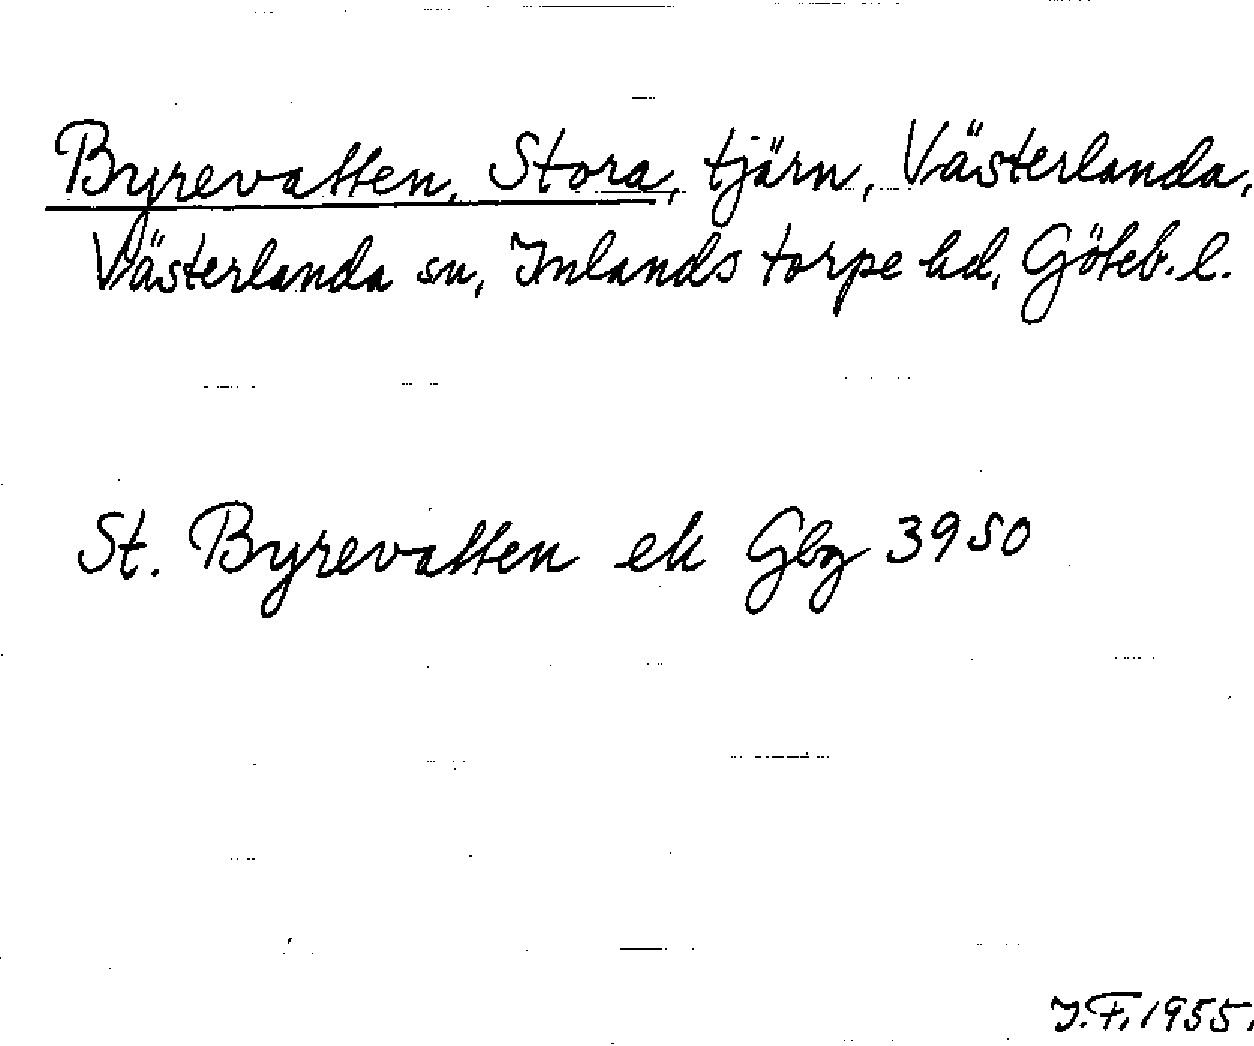 Byrevatten, Stora, tjärn, Västerlanda,
Västerlanda sn, Inlands torpe hd, Göteb. l.
St. Byrevatten ek Gbg 3950
J.F. 1955.